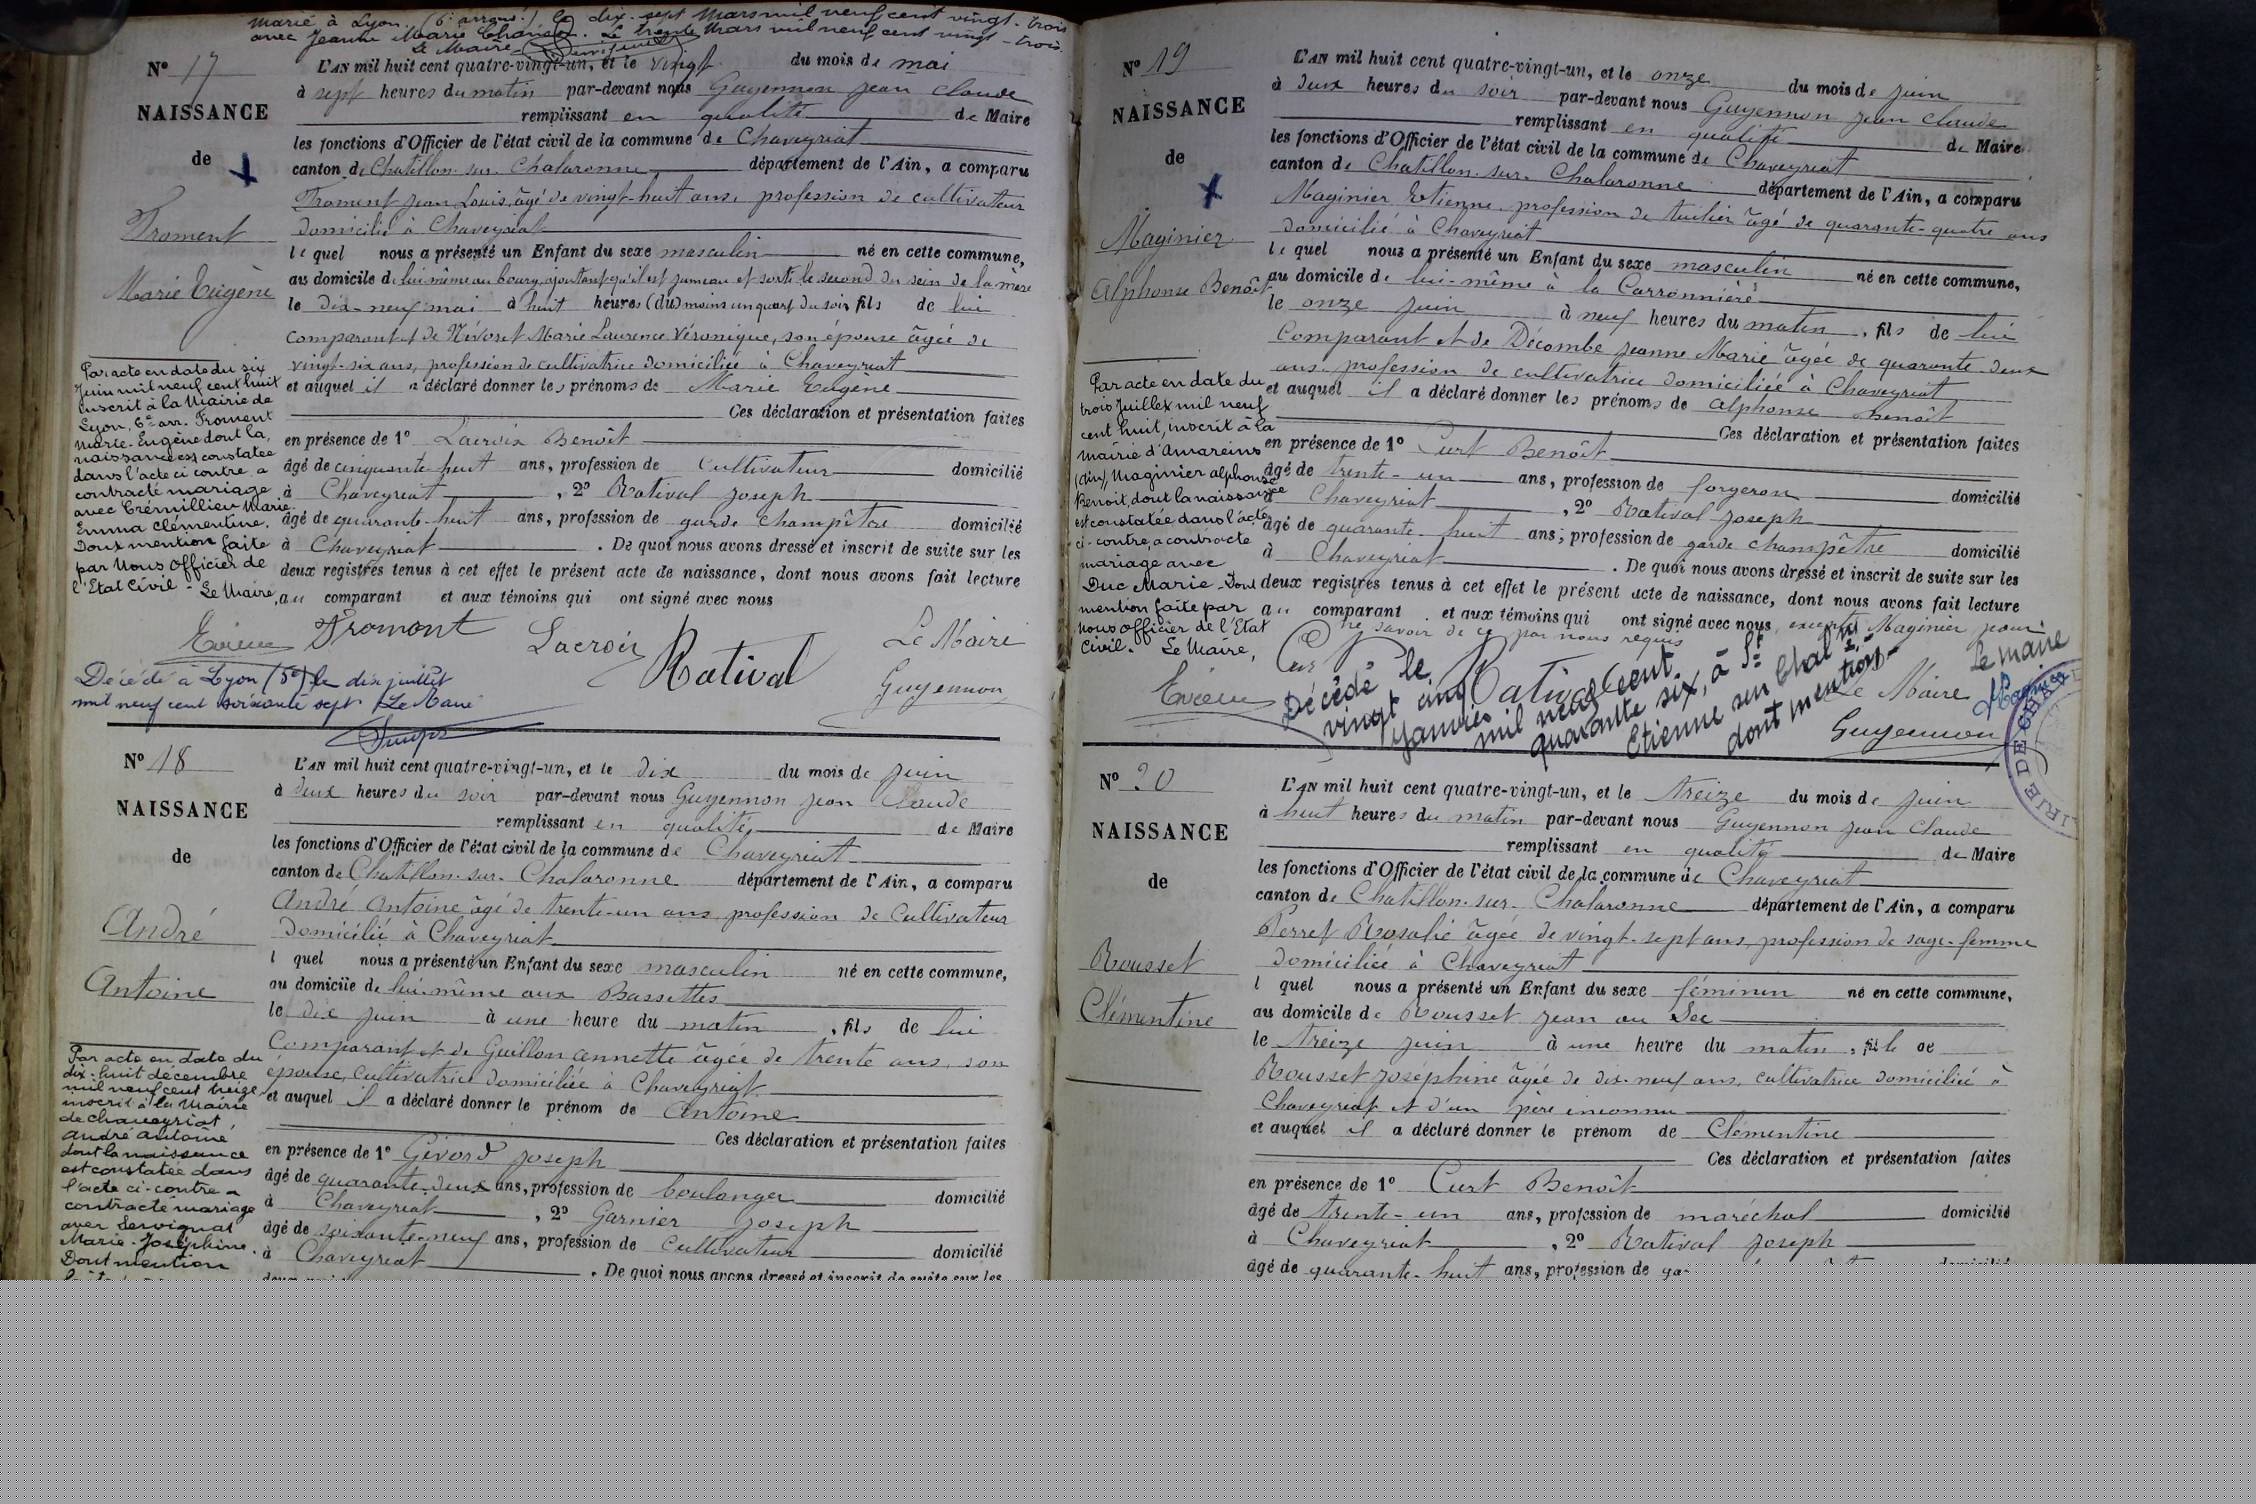 Marié à Lyon (6e arrondt) le dix-sept Mars mil neuf cent vingt-trois
avec Jeanne Marie . Le trente Mars mil neuf cent vingt-trois.
Le Maire
N° 17
NAISSANCE
de
Froment
Marie Eugène
L'AN mil huit cent quatre-vingt-un, et le vingt du mois de mai
à sept heures du matin par-devant nous Guyennon Jean Claude
remplissant en qualité de Maire
les fonctions d'Officier de l'état civil de la commune de Chaveyriat
canton de Chatillon-sur-Chalaronne département de l'Ain, a comparu
Froment Jean Louis, âgé de vingt-huit ans, profession de cultivateur
domicilié à Chaveyriat
lequel nous a présenté un Enfant du sexe masculin né en cette commune,
au domicile de lui-même au bourg, ajoutant qu'il est jumeau et sorti le second du sein de la mère
le dix-neuf mai à huit heures (du) moins un quart du soir fils de lui
comparant et de Marie Laurence Véronique, son épouse âgée de
vingt-six ans, profession de cultivatrice domiciliée à Chaveyriat
et auquel il a déclaré donner les prénoms de Marie Eugène
Ces déclaration et présentation faites
en présence de 1° Lacroix Benoît
âgé de cinquante-huit ans, profession de cultivateur domicilié
à Chaveyriat, 2° Ratival Joseph
âgé de quarante-huit ans, profession de garde champêtre domicilié
à Chaveyriat. De quoi nous avons dressé et inscrit de suite sur les
deux registres tenus à cet effet le présent acte de naissance, dont nous avons fait lecture
au comparant et aux témoins qui ont signé avec nous
Par acte en date du six
Juin mil neuf cent huit
inscrit à la Mairie de
Lyon, 6e arr. Froment
Marie-Eugène dont la
naissance est constatée
dans l'acte ci contre a
contracté mariage
avec Crémillieu Marie
Emma Clémentine.
Dont mention faite
par Nous Officier de
l'Etat Civil - Le Maire,
Froment Lacroix Ratival Le Maire
Guyennon
Décédé à Lyon (5e) le dix juillet
mil neuf cent soixante sept Le Maire
N° 18
NAISSANCE
de
André
Antoine
L'AN mil huit cent quatre-vingt-un, et le dix du mois de juin
à deux heures du soir par-devant nous Guyennon Jean Claude
remplissant en qualité de Maire
les fonctions d'Officier de l'état civil de la commune de Chaveyriat
canton de Chatillon-sur-Chalaronne département de l'Ain, a comparu
André Antoine âgé de trente-un ans, profession de Cultivateur
domicilié à Chaveyriat
lquel nous a présenté un Enfant du sexe masculin né en cette commune,
au domicile de lui-même aux Bassettes
le dix juin à une heure du matin, fils de lui
Comparant et de Guillon Annette âgée de trente ans, son
épouse, cultivatrice domiciliée à Chaveyriat
et auquel il a déclaré donner le prénom de Antoine
Ces déclaration et présentation faites
en présence de 1° Givord Joseph
âgé de quarante-deux ans, profession de boulanger domicilié
à Chaveyriat, 2° Garnier Joseph
âgé de soixante-neuf ans, profession de Cultivateur domicilié
à Chaveyriat. De quoi nous avons dressé et inscrit de suite sur les
Par acte en date du
dix-huit décembre
mil neuf cent treize
inscrit à la Mairie
de Chaveyriat,
André Antoine,
dont la naissance
est constatée dans
l'acte ci-contre a
contracté mariage
avec Servignat
Marie-Joséphine.
Dont mention
N° 19
NAISSANCE
de
Maginier
Alphonse Benoît
L'AN mil huit cent quatre-vingt-un, et le onze du mois de juin
à deux heures du soir par-devant nous Guyennon Jean Claude
remplissant en qualité de Maire
les fonctions d'Officier de l'état civil de la commune de Chaveyriat
canton de Chatillon-sur-Chalaronne département de l'Ain, a comparu
Maginier Etienne profession de tuilier âgé de quarante-quatre ans
domicilié à Chaveyriat
lequel nous a présenté un Enfant du sexe masculin né en cette commune,
au domicile de lui-même à la Carronnière
le onze juin à neuf heures du matin, fils de lui
Comparant et de Décombe Jeanne Marie âgée de quarante-deux
ans, profession de cultivatrice domiciliée à Chaveyriat
et auquel il a déclaré donner les prénoms de Alphonse Benoît
Ces déclaration et présentation faites
en présence de 1° Curt Benoît
âgé de trente-un ans, profession de forgeron domicilié
à Chaveyriat, 2° Ratival Joseph
âgé de quarante-huit ans, profession de garde champêtre domicilié
à Chaveyriat. De quoi nous avons dressé et inscrit de suite sur les
deux registres tenus à cet effet le présent acte de naissance, dont nous avons fait lecture
au comparant et aux témoins qui ont signé avec nous, excepté Maginier pour
ne savoir de ce par nous requis
Par acte en date du
trois Juillet mil neuf
cent huit, inscrit à la
mairie d'Amareins
(Ain), Maginier Alphonse
Benoit, dont la naissance
est constatée dans l'acte
ci-contre, a contracté
mariage avec
Duc Marie. Dont
mention faite par
nous officier de l'Etat
Civil. Le Maire,
Curt Ratival Le Maire
Guyennon
Décédé le
vingt cinq
Janvier
mil neuf cent
quarante six, à St
Etienne sur Chalne
dont mention
Le Maire
MAIRIE DE CHA
N° 20
NAISSANCE
de
Rousset
Clémentine
L'AN mil huit cent quatre-vingt-un, et le treize du mois de juin
à huit heures du matin par-devant nous Guyennon Jean Claude
remplissant en qualité de Maire
les fonctions d'Officier de l'état civil de la commune de Chaveyriat
canton de Chatillon-sur-Chalaronne département de l'Ain, a comparu
Perret Rosalie âgée de vingt-sept ans, profession de sage-femme
domiciliée à Chaveyriat
lquel nous a présenté un Enfant du sexe féminin né en cette commune,
au domicile de Rousset Jean au Sec
le treize juin à une heure du matin, fille de
Rousset Joséphine âgée de dix-neuf ans, cultivatrice domiciliée à
Chaveyriat et d'un père inconnu
et auquel il a déclaré donner le prénom de Clémentine
Ces déclaration et présentation faites
en présence de 1° Curt Benoît
âgé de trente-un ans, profession de maréchal domicilié
à Chaveyriat, 2° Ratival Joseph
âgé de quarante-huit ans, profession de